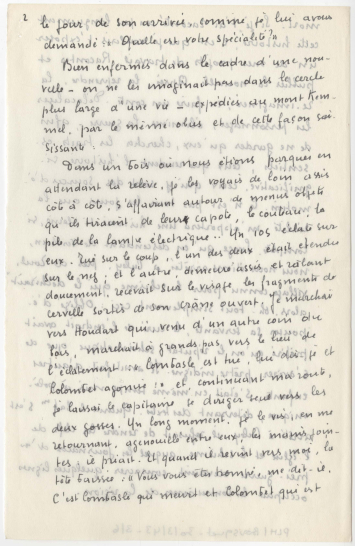 2
le jour de son arrivée comme je lui avais
demandé : « Quelle est votre spécialité ? »
Bien enfermés dans le cadre d'une nou-
velle – on ne les imaginait pas dans le cercle
plus large d'une vie – expédiés au mont Kem-
mel, par le même obus et de cette façon sai-
sissante :
Dans un bois où nous étions parqués en
attendant la relève, je les voyais de loin assis
côte à côte, s'affairant autour de menus objets
qu'ils tiraient de leur capote, le couteau, la
pile de la lampe électrique... Un 105 éclate sur
eux. Tué sur le coup, l'un des deux était étendu
sur le nez ; et l'autre, demeuré assis et râlant
doucement, recevait sur le visage les fragments de
cervelle sortis de son crâne ouvert. Je marchai
vers Houdart qui, venu d'un autre coin du
bois, marchait à grands pas vers le lieu de
l'éclatement : « Lombasle est tué, lui dis-je et
Colombet agonise » et continuant ma route,
je laissai le capitaine se diriger seul vers les
deux gosses. Un long moment, je le vis, en me
retournant, agenouillé entre eux, les mains join-
tes, il priait. Et quand il revint vers moi, la
tête baissée : « Vous vous êtes trompé, me dit-il.
C'est Lombasle qui meurt et Colombet qui est